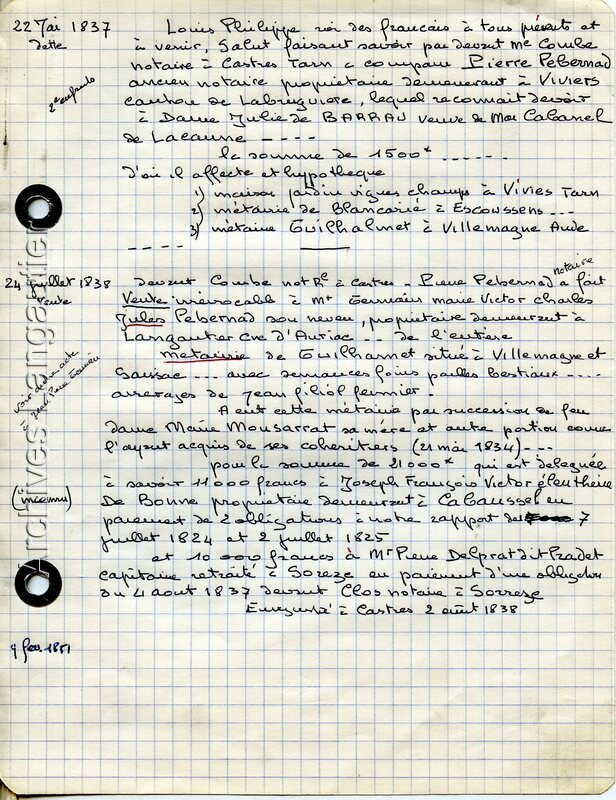 22 Mai 1837
dette
Louis Philippe roi des français à tous présents et
à venir, Salut faisant savoir par devant Me Combe
notaire à Castres Tarn a comparu Pierre Pebernad
ancien notaire propriétaire demeurant à Viviers
canton de Labruguiere, lequel reconnait devoir
à Dame Julie de BARRAU veuve de Mor Cabanel
de Lacaune - - - -
la somme de 1500 - - - - - -
d'où il affecte et hypotheque
1) maison jardin vignes champs à Vivies Tarn
2) métairie de Blancarié à Escoussens - - -
3) métairie Guilhalmet à Villemagne Aude
- - - - -
24 juillet 1838
Vente
devant Combe notRe à Castres - Pierre Pebernad notaire a fait
Vente irrévocable à Mr Germain marie Victor charles
Jules Pebernad son neveu, propriétaire demeurant à
Langautier cne d'Auriac - - de l'entière
metairie de Guilhamet situé à Villemagne et
Saissac - - - avec semances foins pailles bestiaux - - - -
arrerages de Jean filiol fermier.
voir autre acte
à Jean Pierre
A eut cette métairie par succession de feu
dame Marie Monsarrat sa mére et autre portion comme
l'ayant acquis de ses coheritiers (21 mai 1834) - - -
pour la somme de 21000 qui est deleguée
à savoir 11000 francs à Joseph François Victor éleuthère
(inconnu)
De Bonne propriétaire demeurant à Cabaussel en
paiement de 2 obligations à notre rapport des 7
juillet 1824 et 2 juillet 1825
et 10 000 francs à Mr Pierre Delprat dit Pradet
capitaine retraité à Soreze en paiement d'une obligation
du 4 aout 1837 devant Clos notaire à Sorreze
Enregistré à Castres 2 août 1838
9 fevr. 1851
Archives Langautier